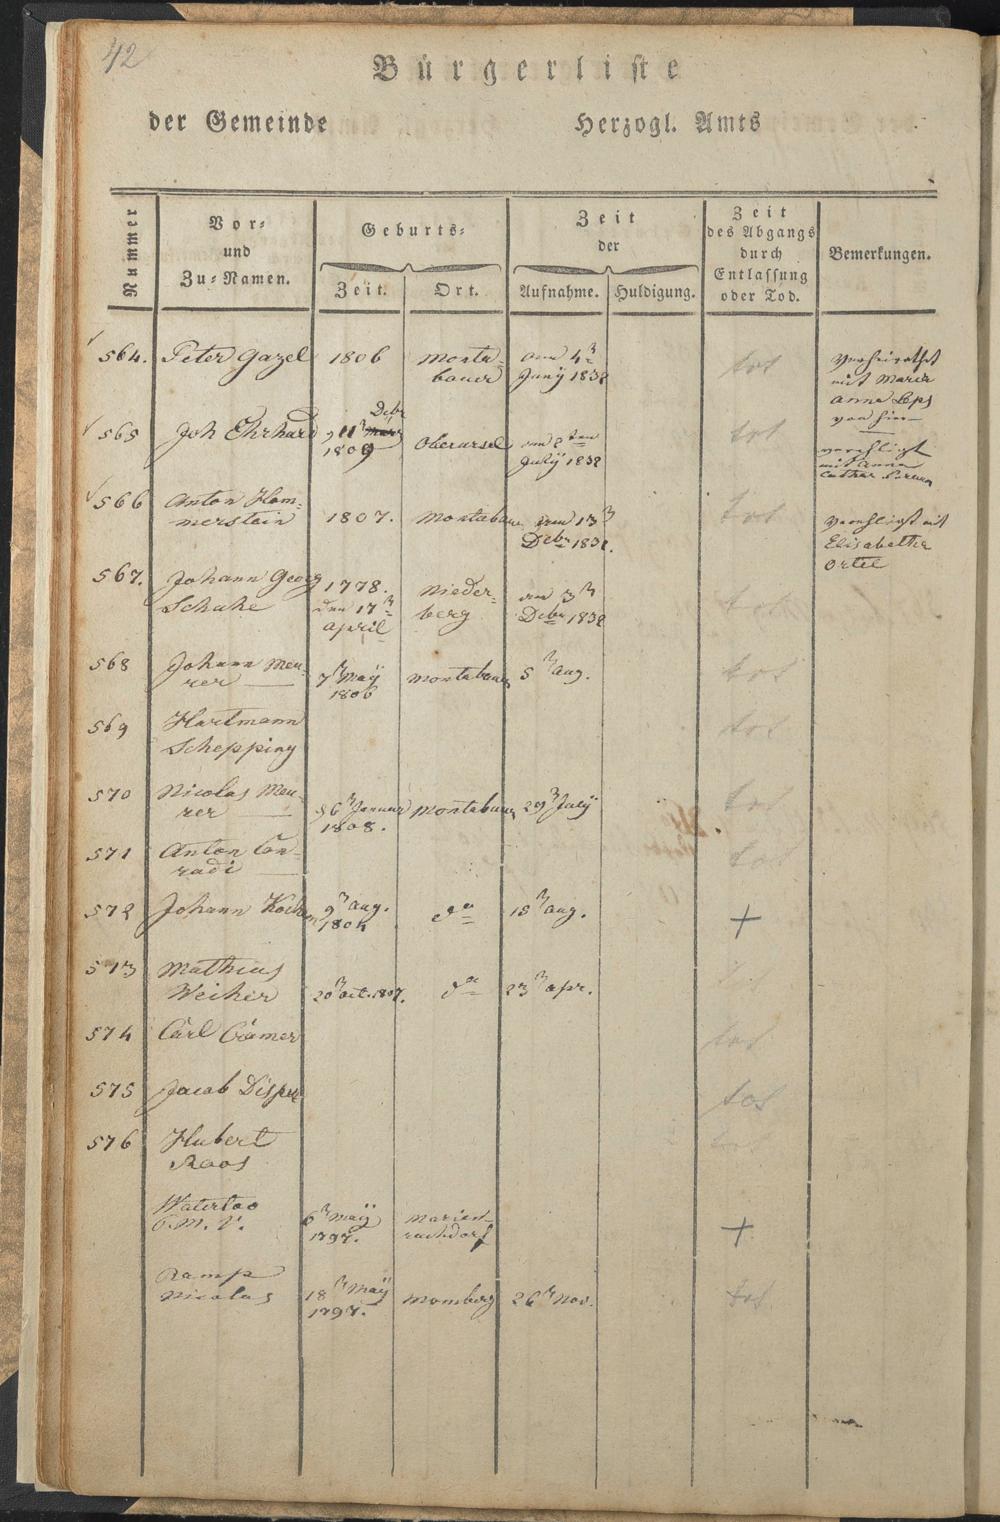 42
Bürgerliste
der Gemeinde Herzogl. Amts
Nummer
Vor-
und
Zu-Namen.
Geburts-
Zeit.
Ort.
Zeit
der
Aufnahme.
Huldigung.
Zeit
des Abgangs
durch
Entlassung
oder Tod.
Bemerkungen.
564. Peter Gazel 1806 Monta-
bauer
am 4n
Juny 1832
tot
Verheirathet
mit Maria
Anna Leps
von hier
565 Joh Ehrhard
Debr
11n März
1809
Oberursel
am 2ten
July 1832
tot
verehligt
mit Anna
Cathar.
566 Anton Ham-
merstein
1807. Montabaur
am 13n
Debr 1832.
tot
Verehligt mit
Elisabetha
Ortel
567. Johann Georg
Schuhe
1778.
den 17n
April
Nieder-
berg
am 3n
Debr 1832
tot
568 Johann Meu-
rer
7n May
1806
Montabaur 5n Aug.
tot
569 Hartmann
Schepping
tot
570 Nicolas Meu-
rer
Januar
1808.
Montabaur 29n July
tot
571 Anton Con-
radi
tot
572 Johann Koch
9n Aug.
1804
do 15n Aug.
+
573 Mathias
Weiher
20n Oct. 1807. do 23n Apr.
574 Carl Cramer
tot
575 Jacob Disper
tot
576 Hubert
Roos
tot
Waterloo
6n May
1797.
Marien-
rachdorf
+
Ramp
Nicolas
18n May
1797.
Momberg 26n Nov.
tot